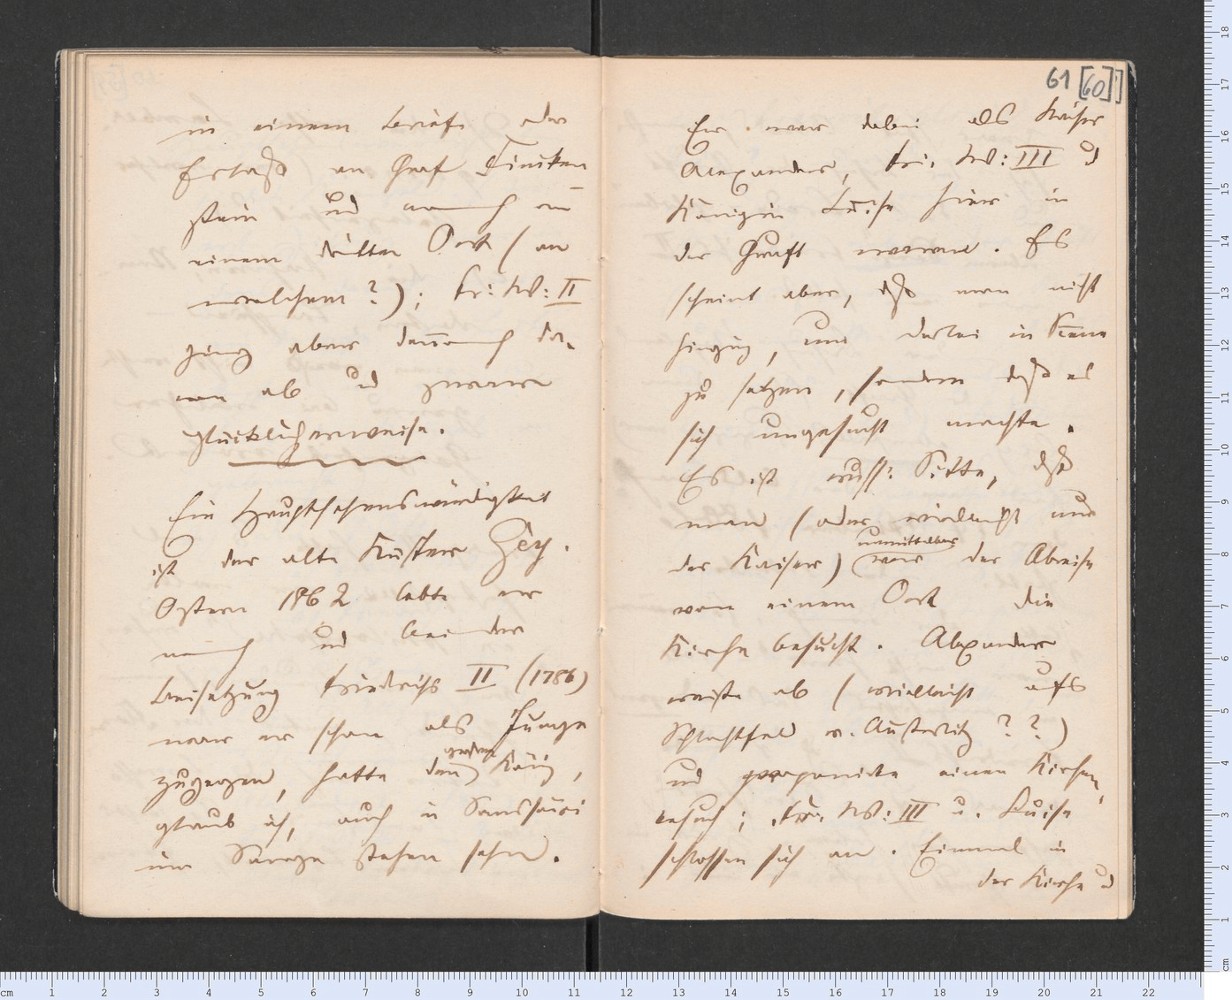 in einem Briefe oder
Erlaß an Graf Finken-
stein und noch an
einem dritten Ort (an
welchem?); Fr: W: II
ging aber dennoch da-
von ab und zwar
glücklicherweise.
Ein Hauptsehenswürdigkeit
ist der alte Küster Gery.
Ostern 1862 lebte er
noch und bei der
Beisetzung Friedrichs II (1786)
war er schon als Junge
zugegen, hatte den großen König,
glaub ich, auch in Sanssouci
im Sarge stehen sehn.
61 [60]
Er war dabei als Kaiser
Alexander, Fr. W: III u
Königin Luise hier in
der Gruft waren. Es
scheint aber, daß man nicht
hinging, um dabei in Scene
zu setzen, sondern daß es
sich ungesucht machte.
Es ist russ: Sitte, daß
man (oder vielleicht nur
der Kaiser) unmittelbar vor der Abreise
von einem Ort die
Kirche besucht. Alexander
reiste ab (vielleicht aufs
Schlachtfeld v. Austerlitz??)
und proponirte einen Kirchen-
besuch; Fr. W: III u. Luise
schlossen sich an. Einmal in
der Kirche u